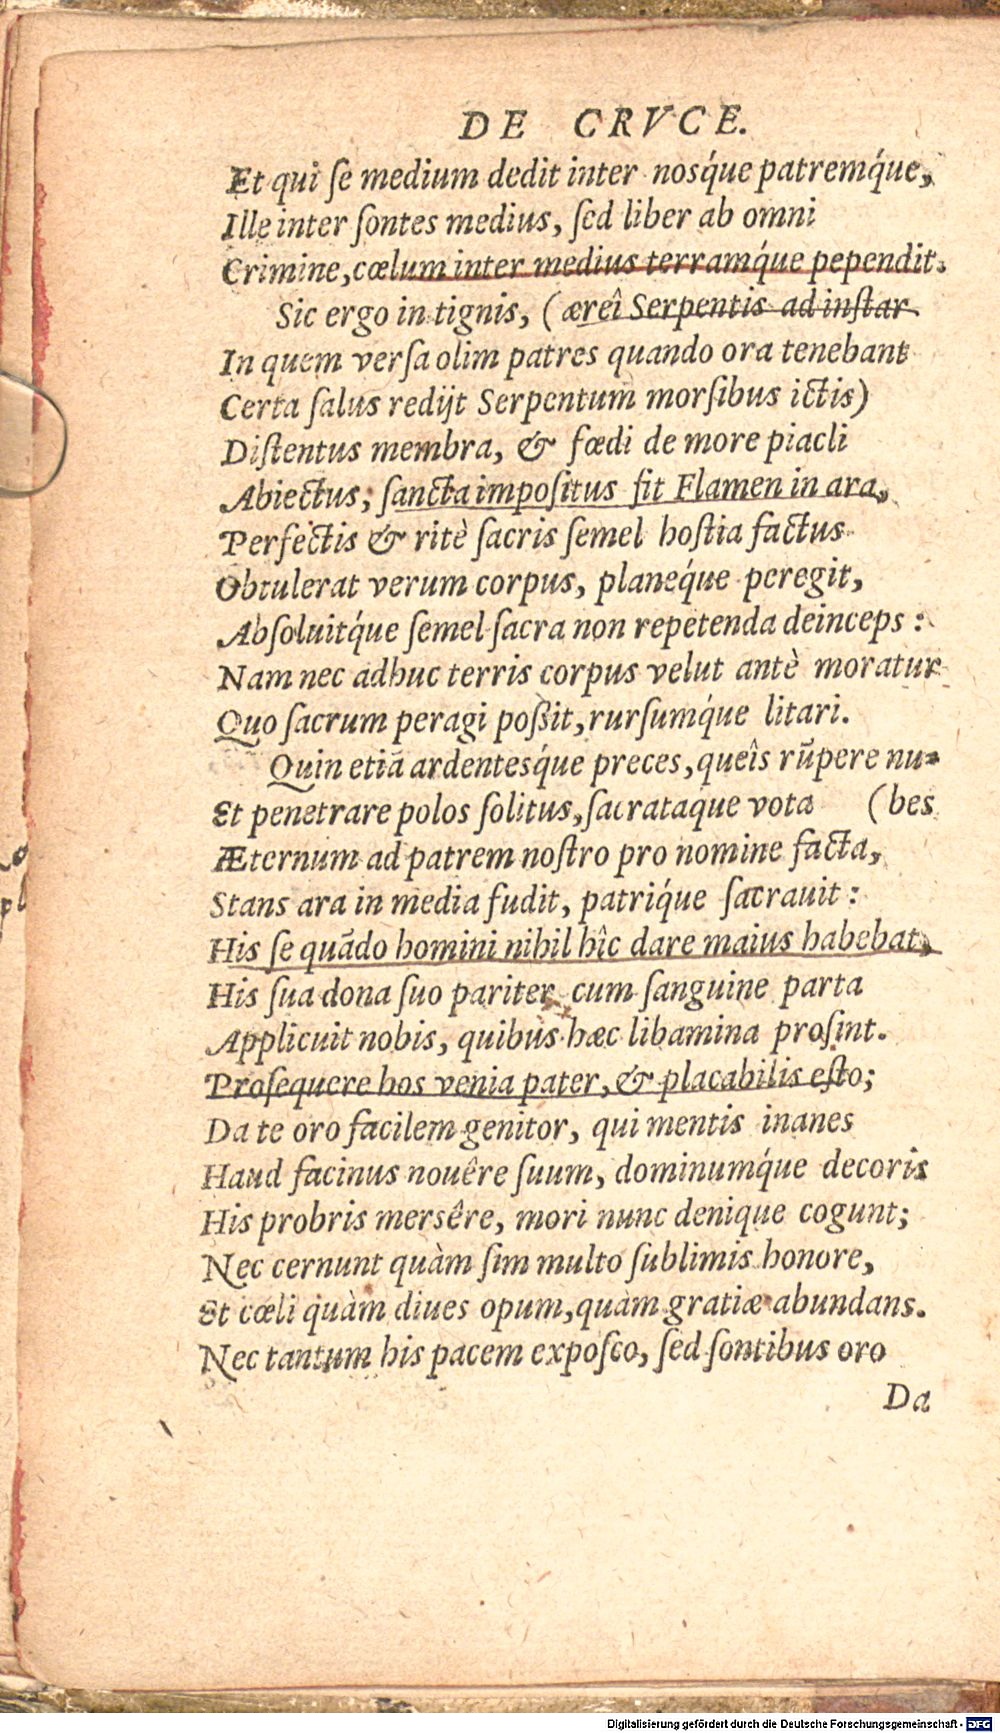 DE CRVCE.
Et qui ſe medium dedit inter nosq́ue patremq́ue,
Ille inter ſontes medius, ſed liber ab omni
Crimine, cœlum inter medius terramq́ue pependit.
Sic ergo in tignis, (æreî Serpentis ad inſtar
In quem verſa olim patres quando ora tenebant
Certa ſalus redijt Serpentum morſibus ictis)
Diſtentus membra, & fœdi de more piacli
Abiectus, ſancta impoſitus fit Flamen in ara,
Perfectis & ritè ſacris ſemel hoſtia factus
Obtulerat verum corpus, planeq́ue peregit,
Abſoluitq́ue ſemel ſacra non repetenda deinceps:
Nam nec adhuc terris corpus velut antè moratur
Quo ſacrum peragi poßit, rurſumq́ue litari.
Quin etiā ardentesq́ue preces, queîs rūpere nu-
Et penetrare polos ſolitus, ſacrataque vota (bes
Æternum ad patrem noſtro pro nomine facta,
Stans ara in media fudit, patriq́ue ſacrauit:
His ſe quādo homini nihil hîc dare maius habebat,
His ſua dona ſuo pariter cum ſanguine parta
Applicuit nobis, quibus hæc libamina proſint.
Proſequere hos venia pater, & placabilis eſto;
Da te oro facilem genitor, qui mentis inanes
Haud facinus nouêre ſuum, dominumq́ue decoris
His probris merſêre, mori nunc denique cogunt;
Nec cernunt quàm ſim multo ſublimis honore,
Et cœli quàm diues opum, quàm gratiæ abundans.
Nec tantum his pacem expoſco, ſed ſontibus oro
Da
Digitalisierung gefördert durch die Deutsche Forschungsgemeinschaft - DFG